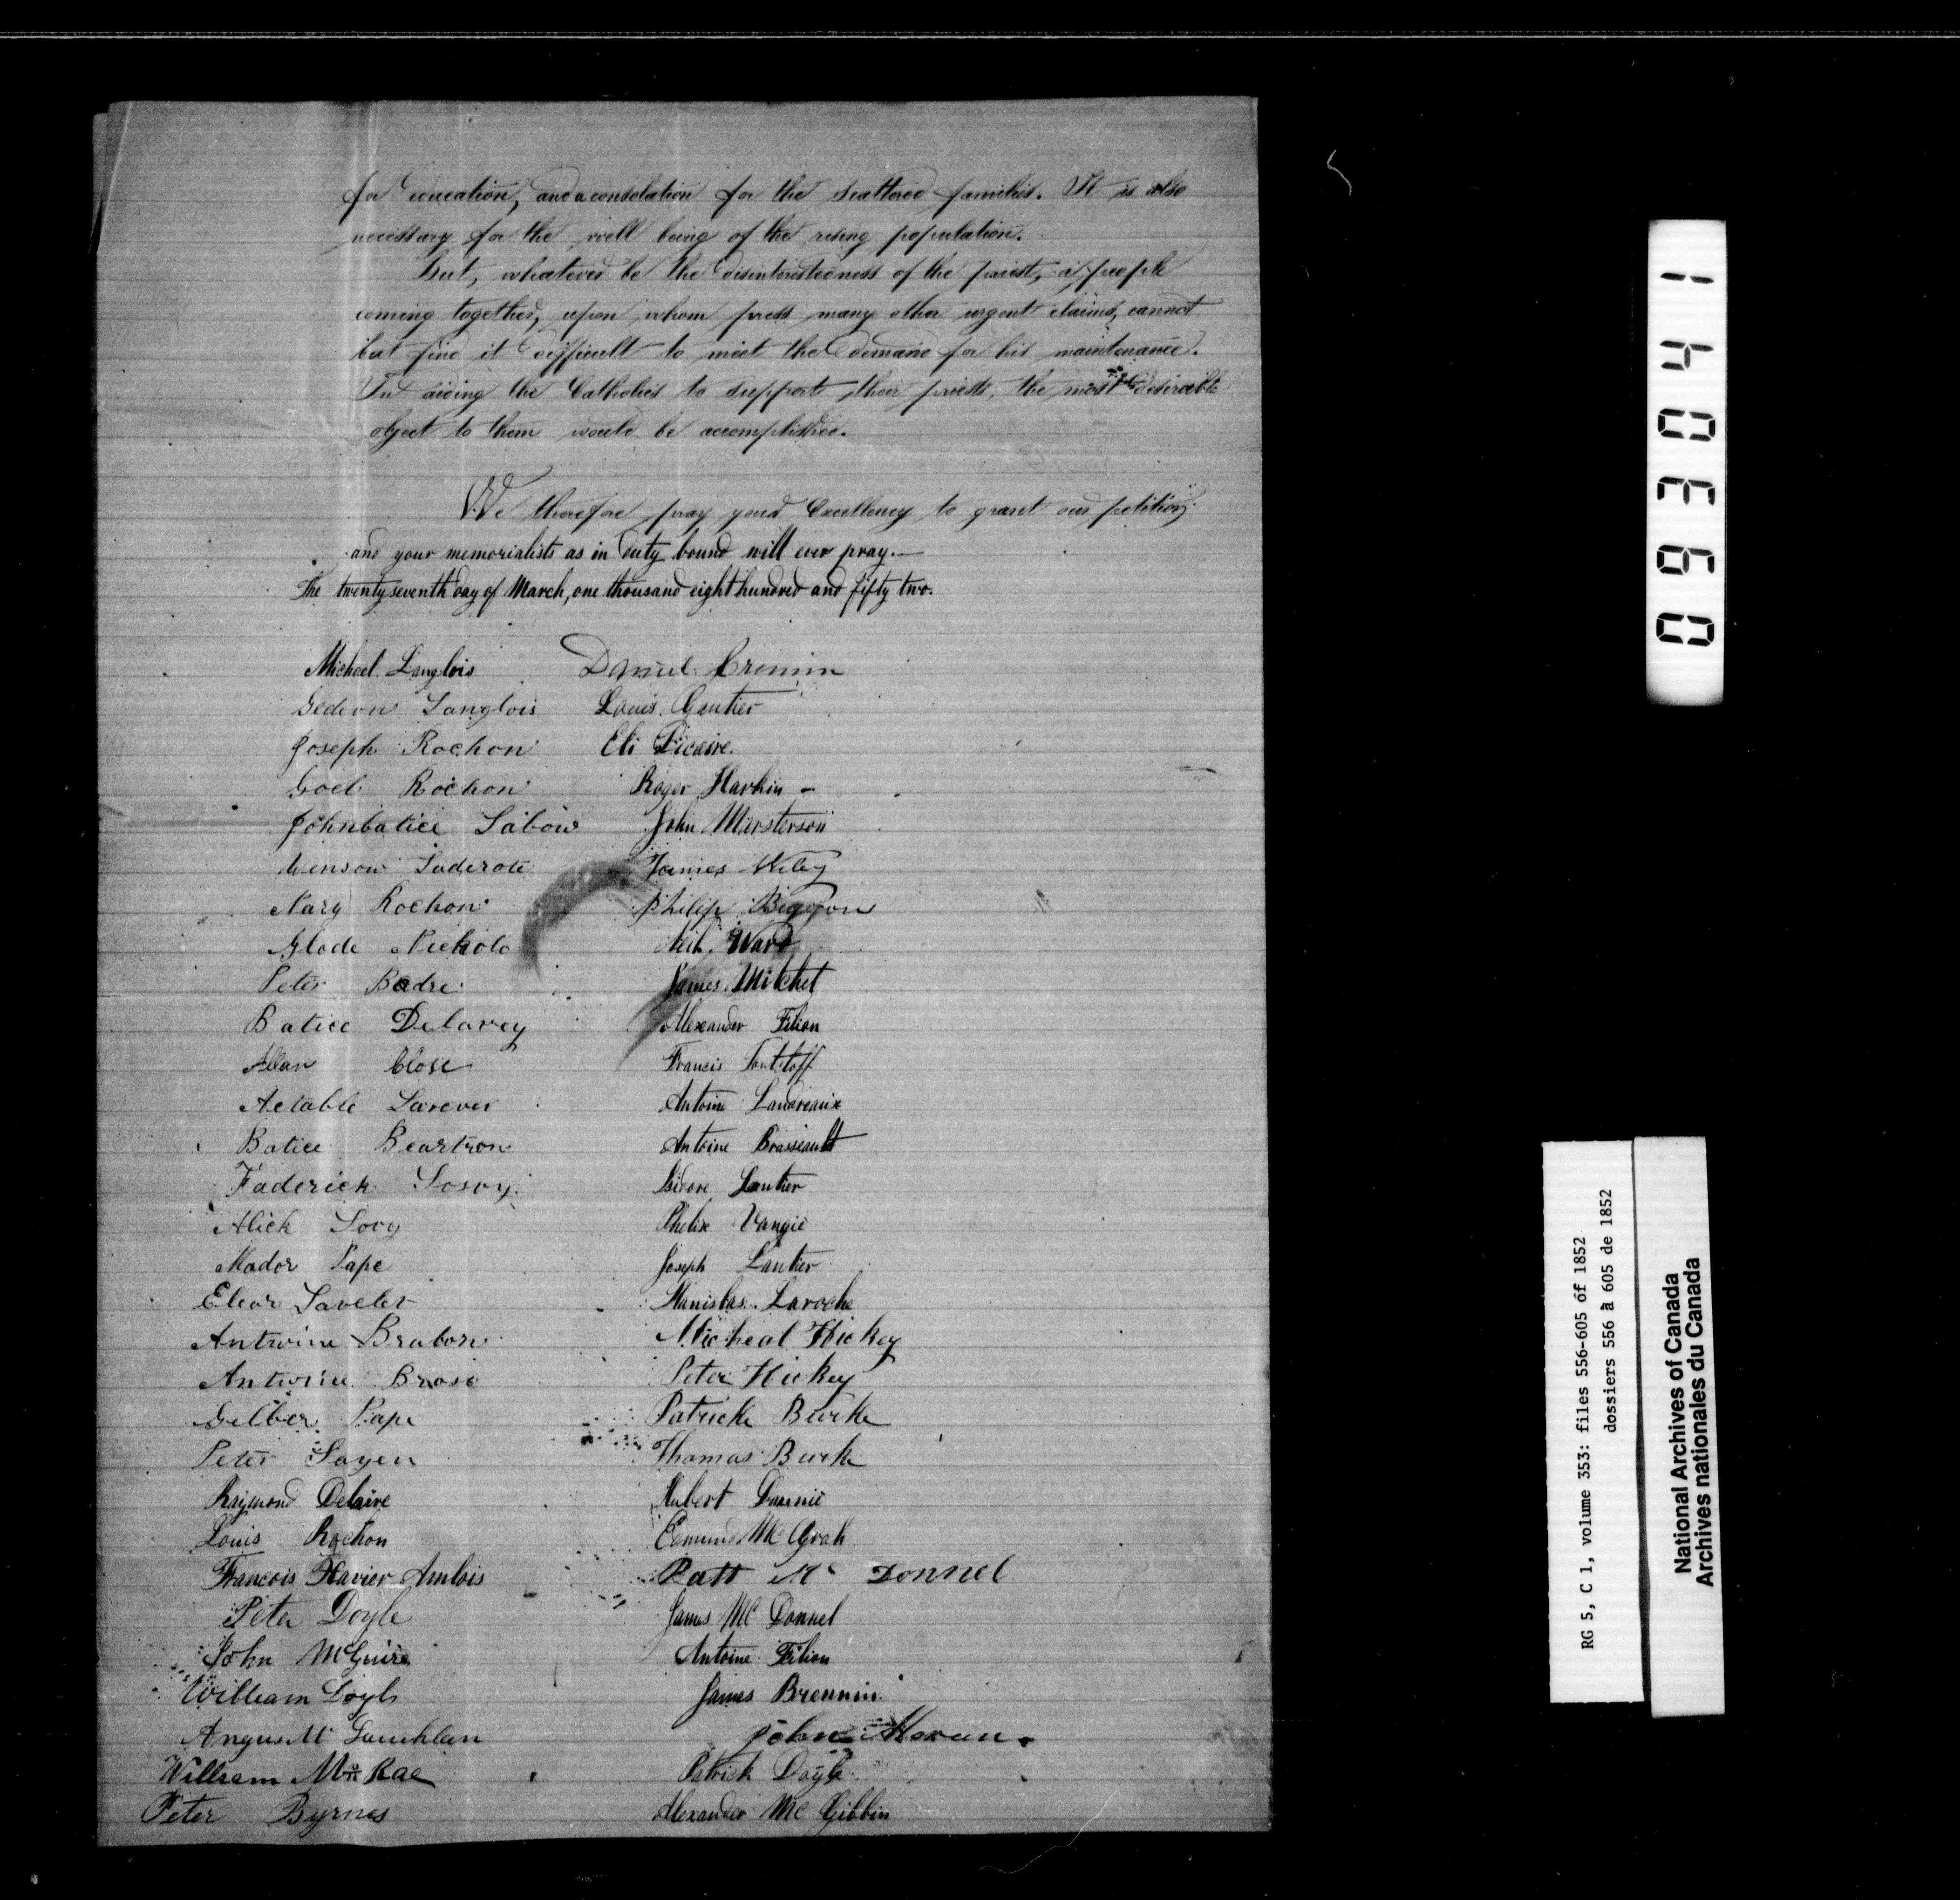 for education, and a consolation for the scattered families. It is also
necessary for the well being of the rising population.
But, whatever be the disinterestedness of the priest, a people
coming together, upon whom press many other urgent claims, cannot
but find it difficult to meet the demand for his maintenance.
In aiding the Catholics to support their priests, the most desirable
object to them would be accomplished.
We therefore pray your Excellency to grant our petition;
and your memorialists as in duty bound will ever pray.—
The twenty seventh day of March, one thousand eight hundred and fifty two.
Michael Langlois
Gedeon Langlois
Joseph Rochon
Goel Rochon
Johnbatice
Nary Rochon
Glode Nichols
Peter Badre
Batice Delarey
Allan Close
Actable Larever
Batice Beartron
Faderick
Alick
Mador Pape
Eleor Laveler
Antwine Brabon
Antwine Brose
Gilber Pape
Peter Layen
Raymond Delaire
Louis Rochon
Francois Xavier Amlois
Peter Doyle
John McGuire
William Doyle
Angus Mc Lauchlan
William McRae
Peter Byrnes
Daniel Cremin
Louis Gautier
Eli Dicaire.
Roger Harkin -
John Marsterson
James Wiley
Philip Biggon
Neil Ward
James Mitchel
Alexander Filion
Francis
Antoine Landreaux
Antoine Brasseault
Isidore Lautier
Phelix Vangie
Joseph Lautier
Stanislas Laroche
Micheal Hickey
Peter Hickey
Patrick Burke
Thomas Burke
Hubert
Edmund Mc Grah
Patt Mc Donnel
James Mc Donnel
Antoine Filion
James Brennin
John Moran.
Patrick Doyle
Alexander Mc Gibbin
096304 1
RG 5, C 1, volume 353: files 556-605 of 1852
dossiers 556 à 605 de 1852
National Archives of Canada
Archives nationales du Canada